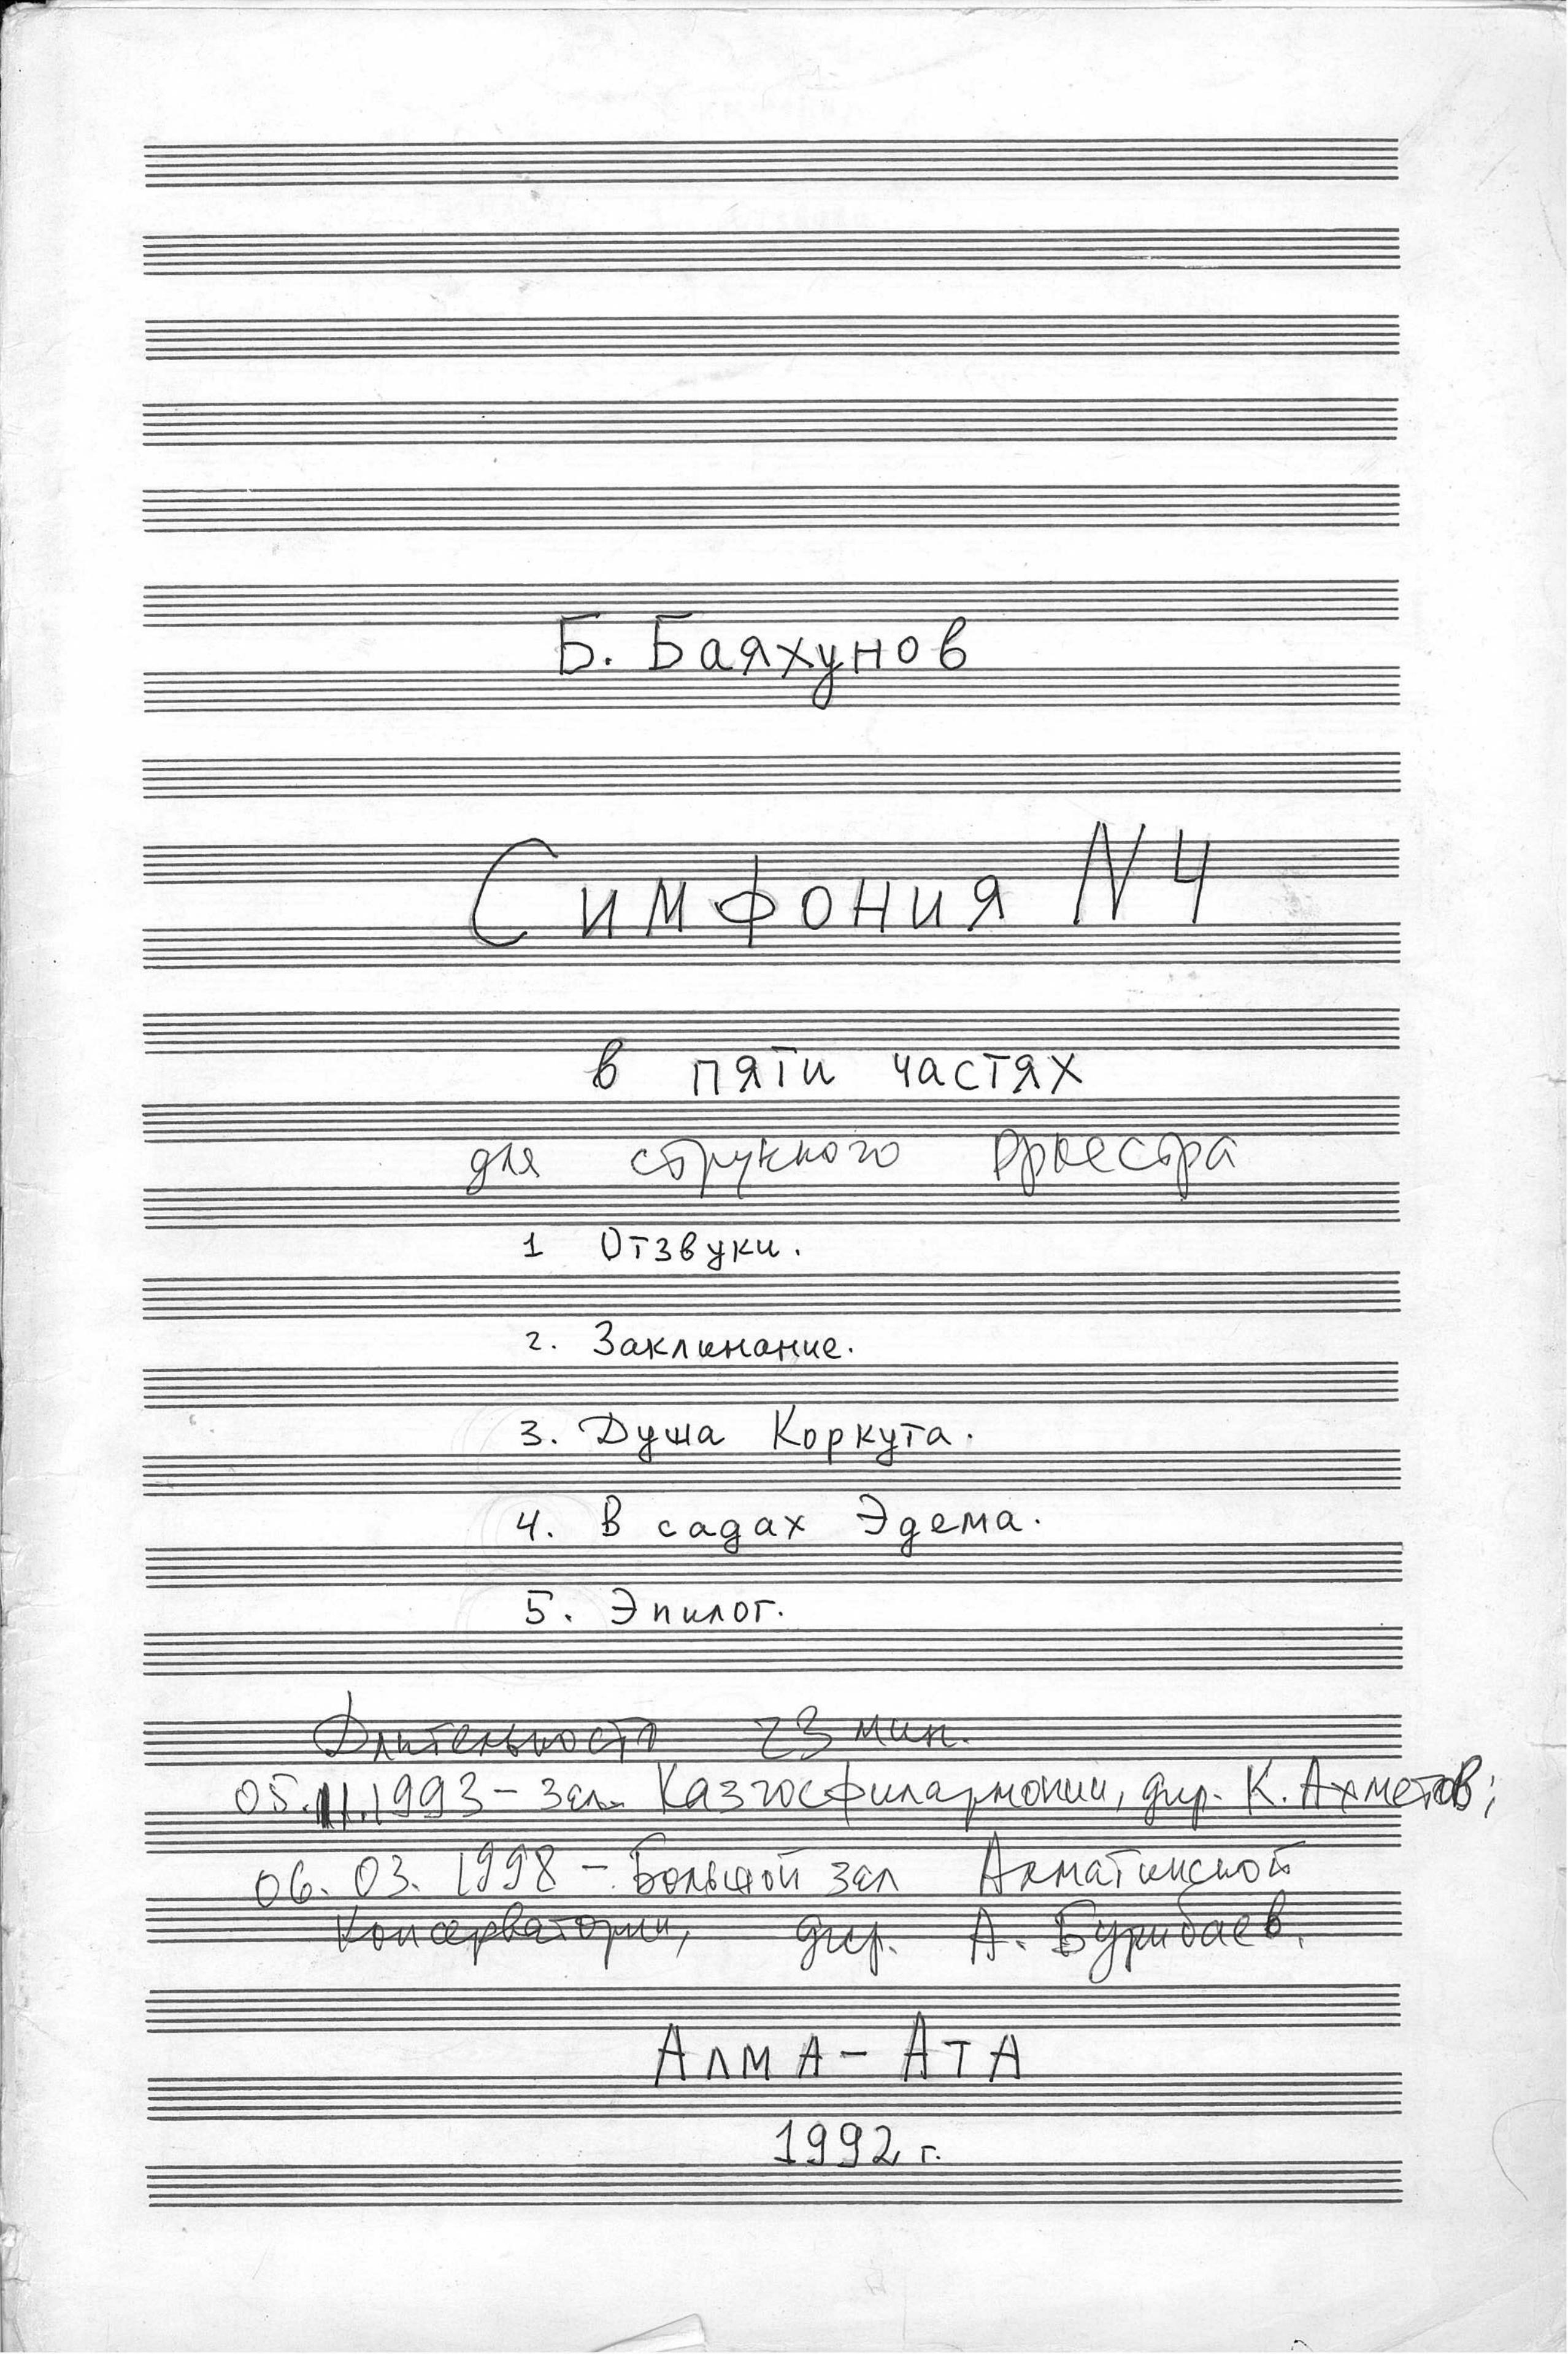 Б. Баяхунов
Симфония N 4
в пяти частях
для струнного оркестра
1 Отзвуки.
2. Заклинание.
3. Душа Коркута.
4. В садах Эдема.
5. Эпилог.
Длительность 23 мин.
05.11.1993 – зал Казгосфилармонии, дир. К. Ахметов;
06. 03. 1998 – Большой зал Алматинской
консерватории, дир. А. Бурибаев.
Алма-Ата
1992 г.